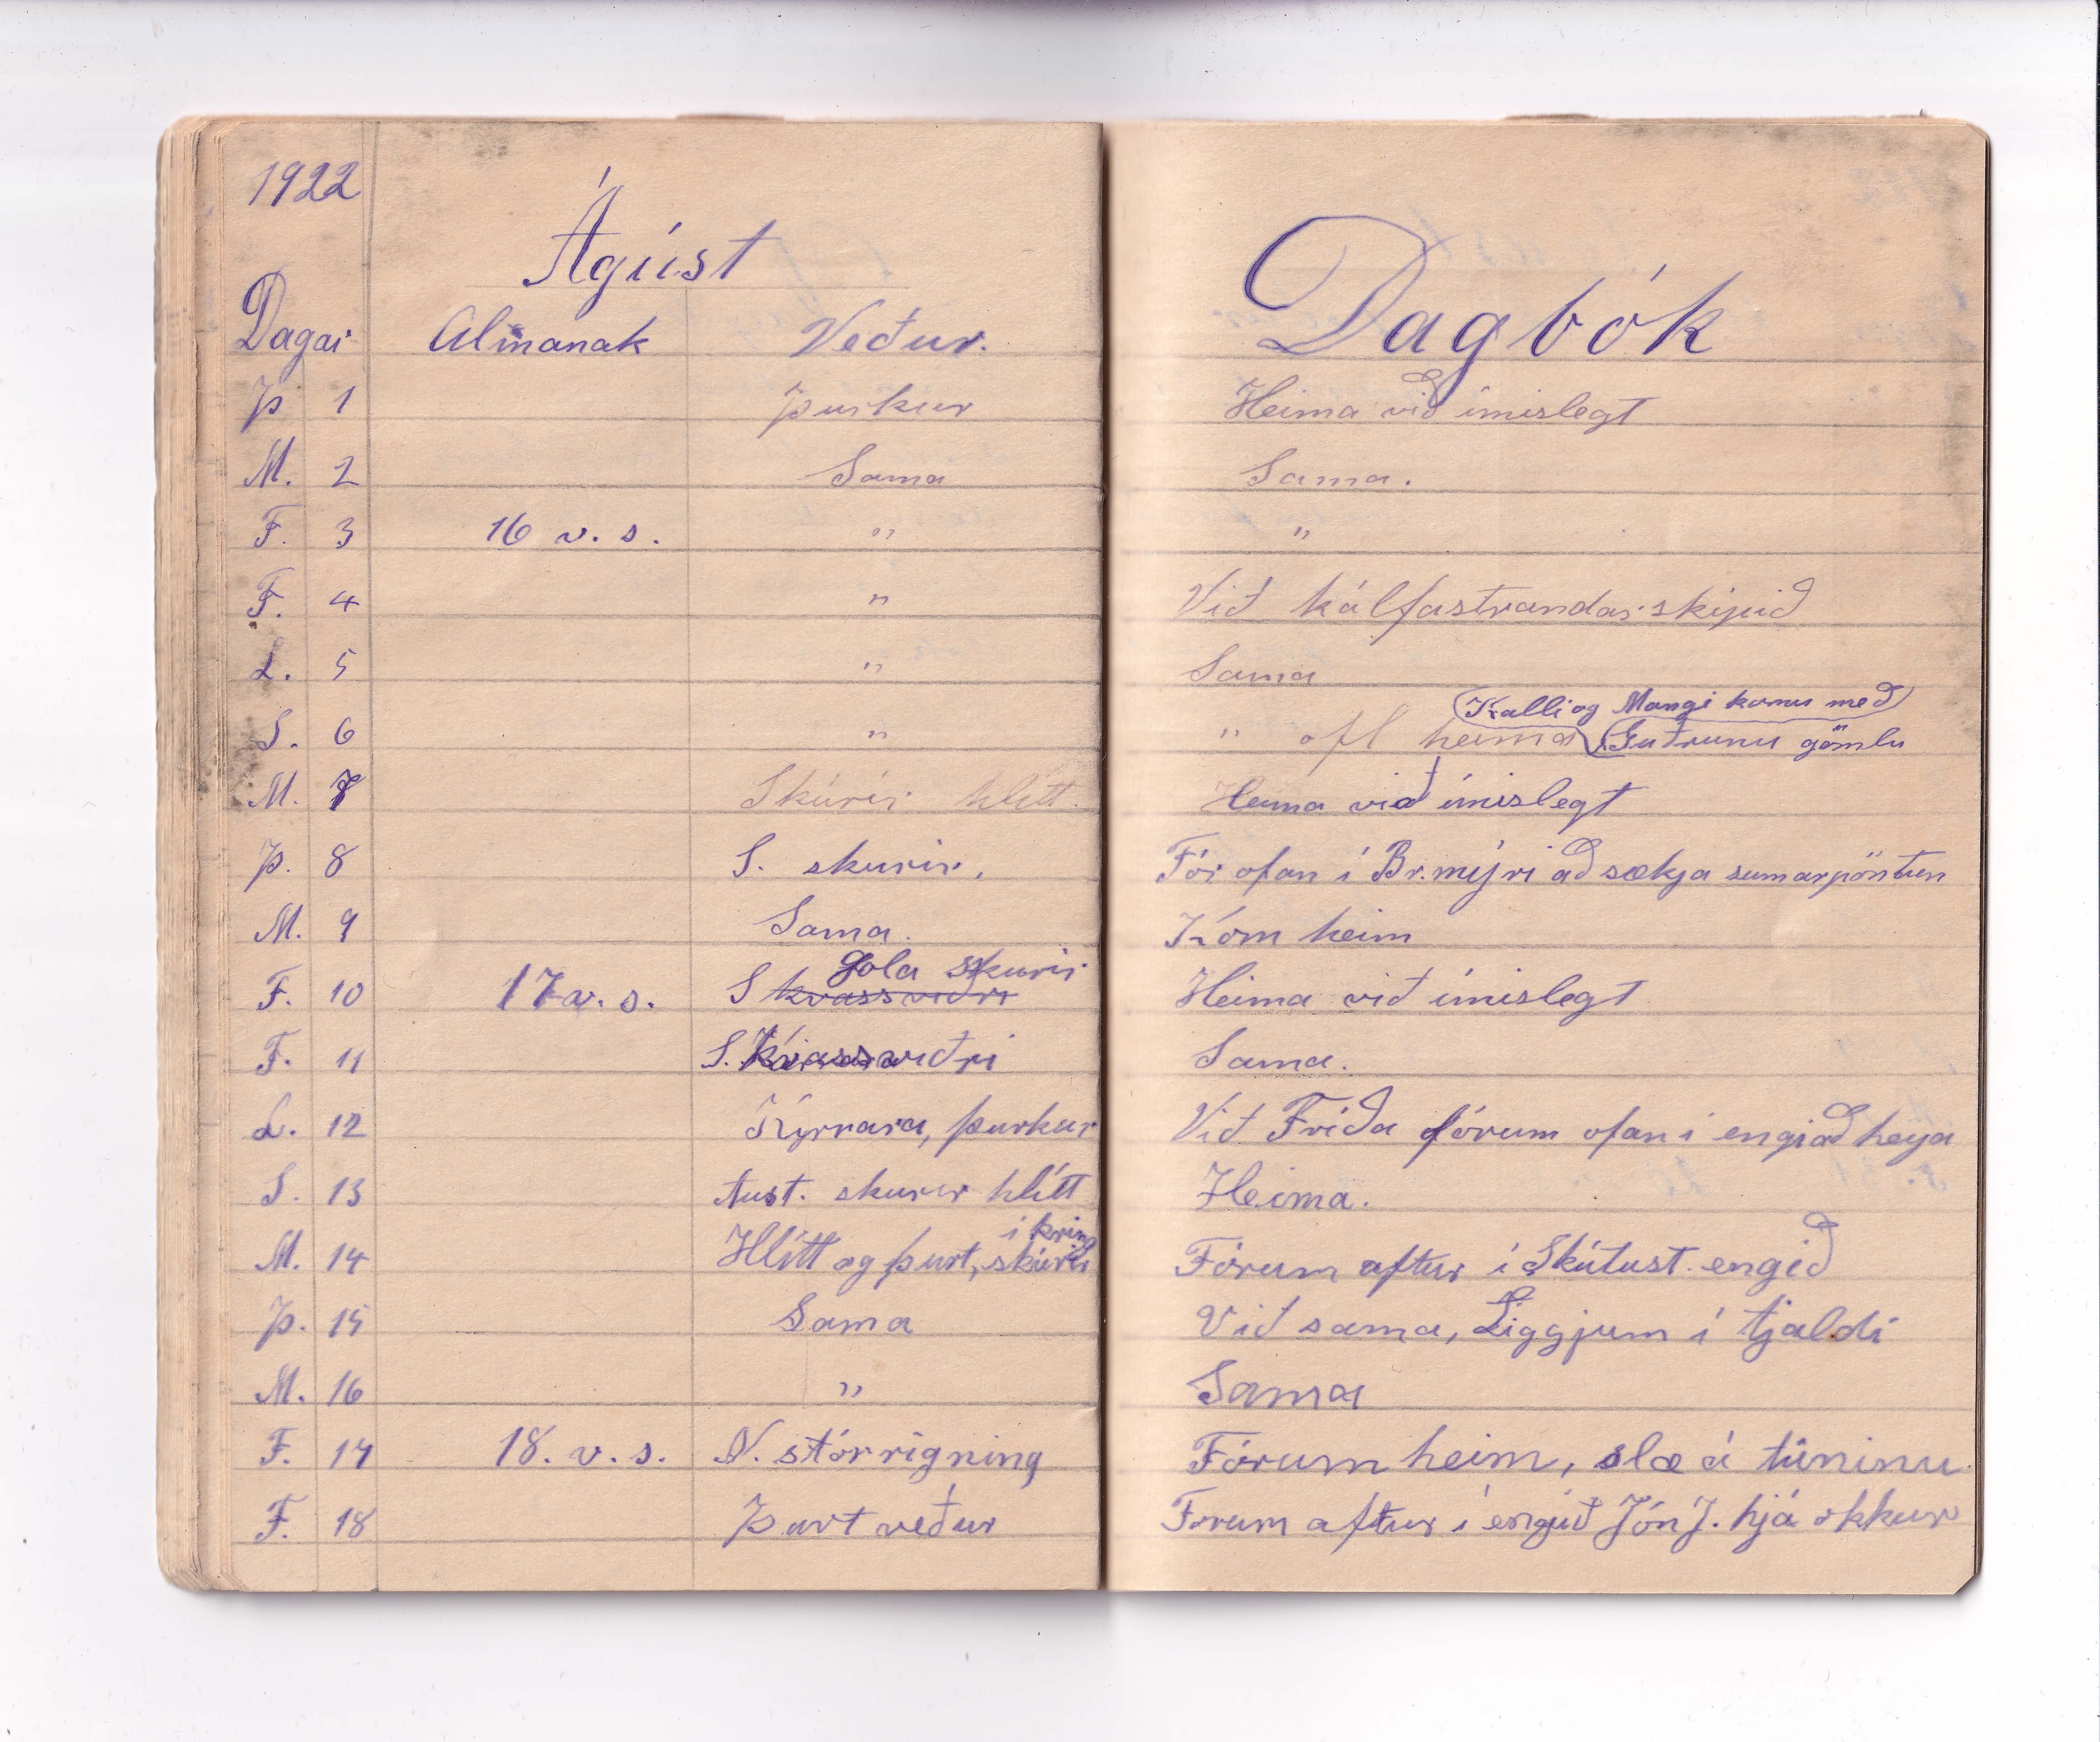 1922
Ágúst
Dagar Almanak Veður.
Þ 1 Þurkur
M. 2 Sama
F. 3 16 v. s. "
F. 4 "
L. 5 "
S. 6 "
M. 7 Skúrir hlítt.
Þ. 8 S. skurir.
M. 9 Sama.
gola skurir
F. 10 17 v. s. S kvassviðri
F. 11 S. Kvassviðri
L. 12 Kyrrara, þurkur
S. 13 Aust. skurir hlítt
i kring
M. 14 Hlítt og þurt, skúrir
Þ. 15 Sama
M. 16 "
F. 17 18. v. s. N. stórrigning
F. 18 Þurt veður
Dagbók
Heima við ímislegt
Sama.
"
Við kálfastrandar skipið
Sama
Kalli og Mangi komu með
" heima Guðrunu gömlu
Heima við ímislegt
Fór ofan í Br.mýri að sækja sumarpöntun
Kom heim
Heima við ímislegt
Sama.
Við Fríða fórum ofan i engi að heya
Heima.
Fórum aftur í Skútust. engið
Við sama, Liggjum í tjaldi
Sama
Fórum heim, slæ á túninu.
Forum aftur í engið Jón J. hjá okkur